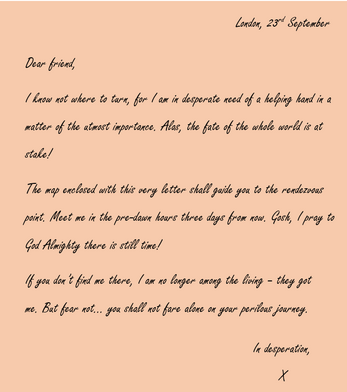 London, 23rd September
Dear friend,
I know not where to turn, for I am in desperate need of a helping hand in a
matter of the utmost importance. Alas, the fate of the whole world is at
stake!
The map enclosed with this very letter shall guide you to the rendezvous
point. Meet me in the pre-dawn hours three days from now. Gosh, I pray to
God Almighty there is still time!
If you don't find me there, I am no longer among the living – they got
me. But fear not... you shall not fare alone on your perilous journey.
In desperation,
X